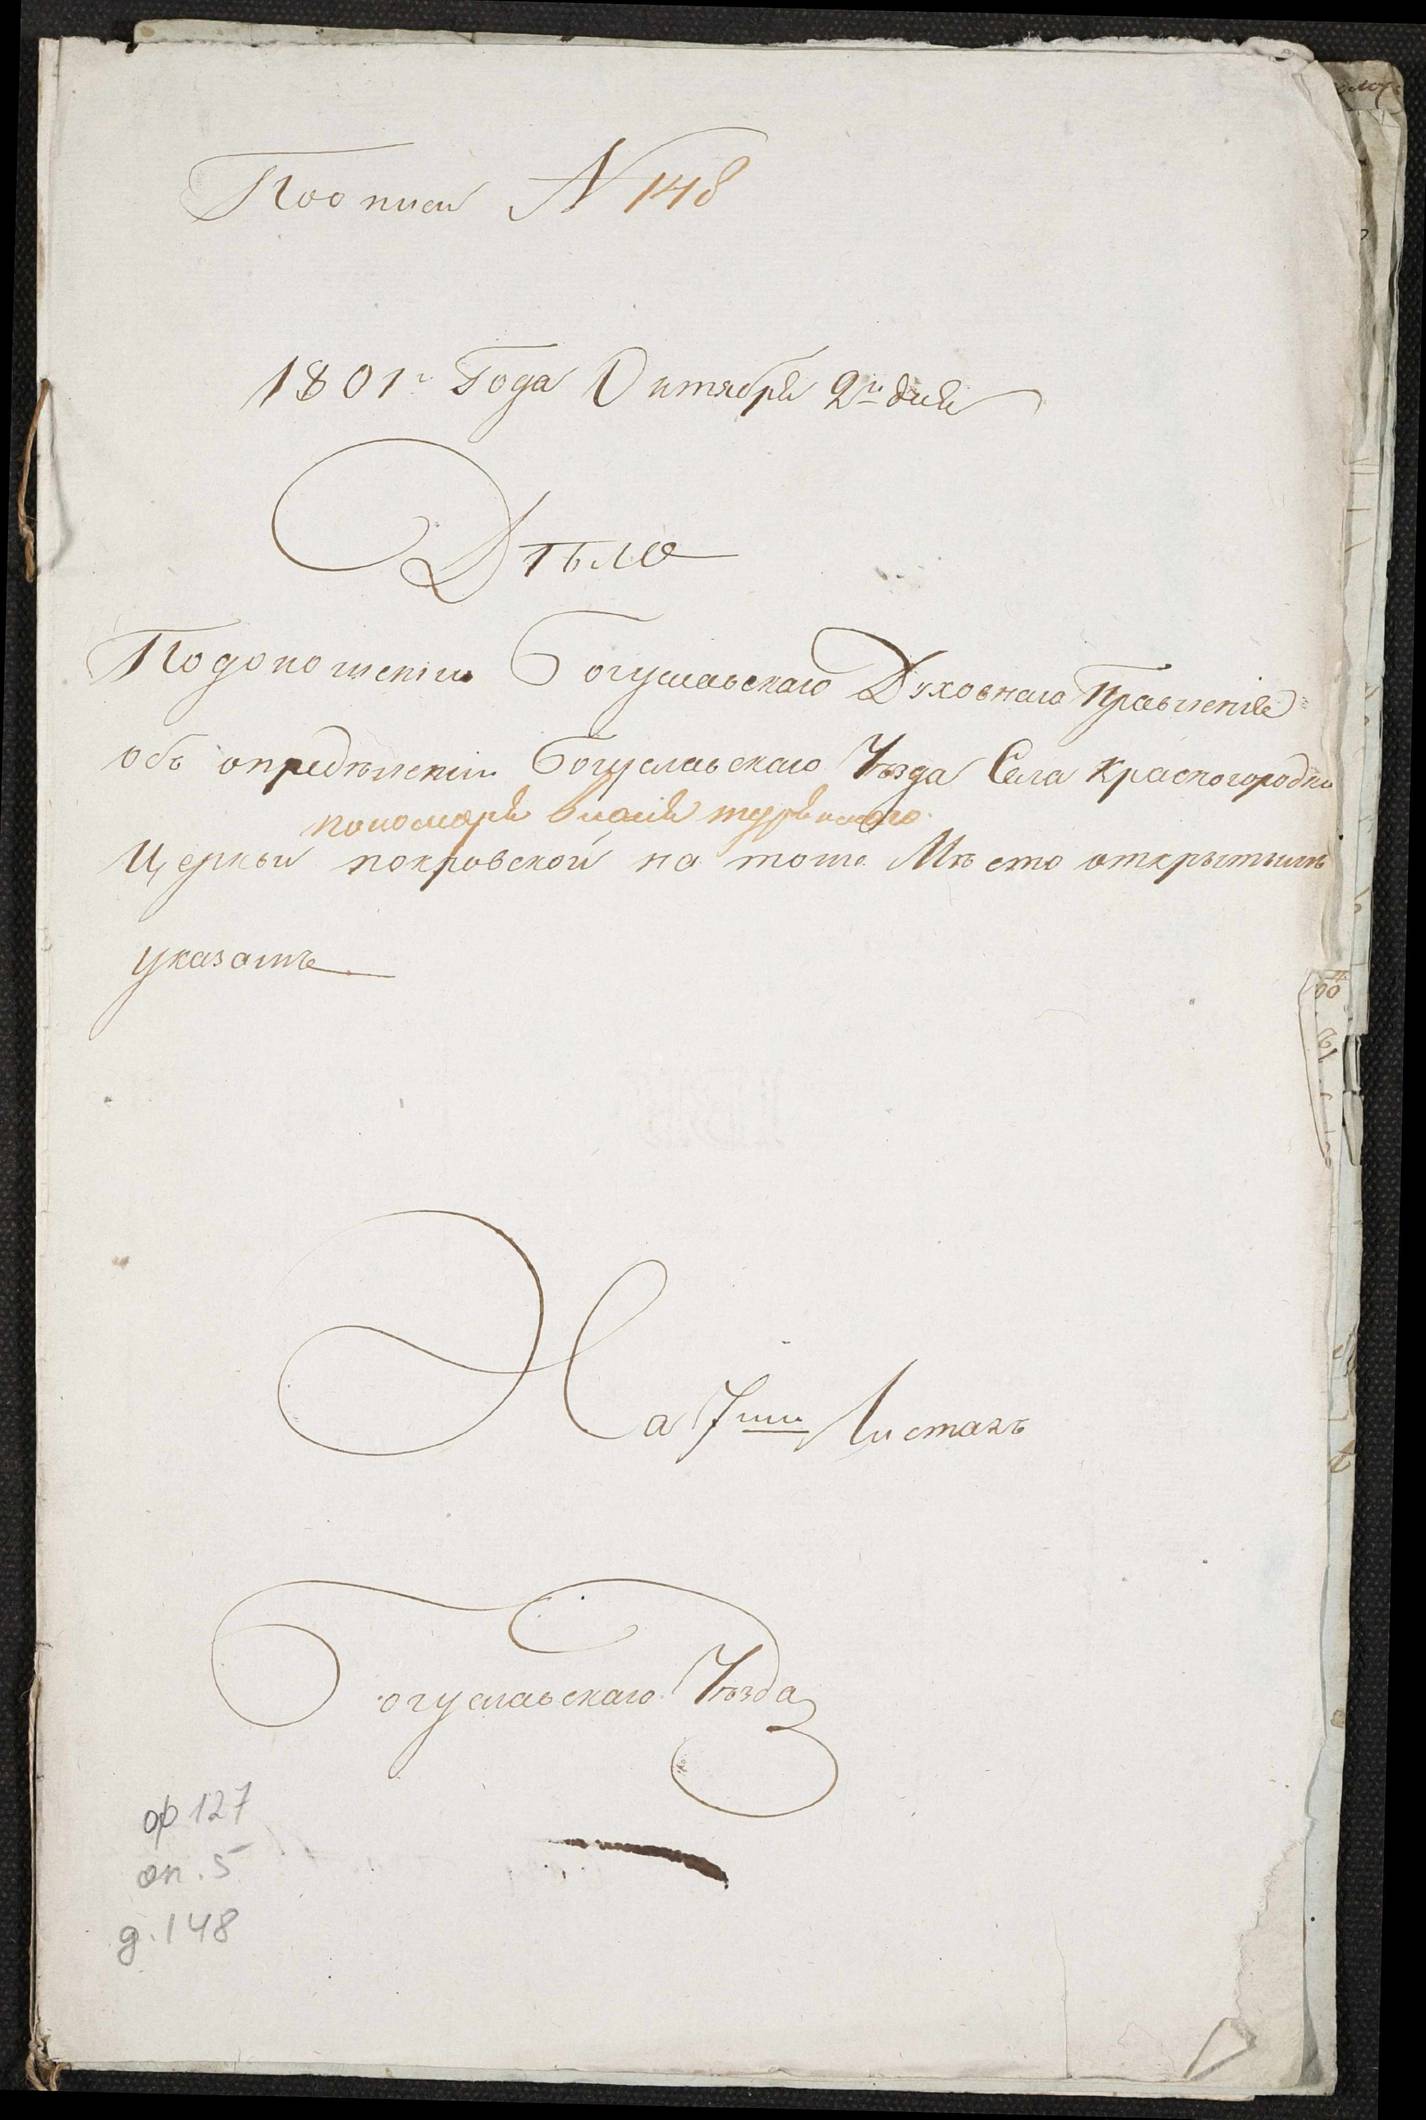 По описи № 148
1801г Года Октября 2го дня
Дѣло
По доношенію Богуславскаго Духовнаго Правленія
объ опредѣленіи Богуславскаго Уѣзда Села Красногородки
пономаря
Церкви покровской на тоже Мѣсто открытымъ
указомъ
На 7ми Листахъ
Богуславскаго Уѣзда
ф 127
оп. 5
д. 148